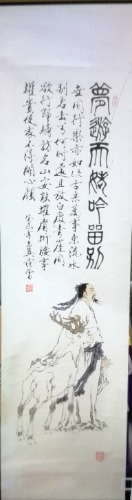 夢遊天姥吟留別
世間行樂亦如此古來萬事東流水
別君去兮何時還且放白鹿青崖間
欲行即騎訪名山安能摧眉折腰事
權貴使我不得開心顏